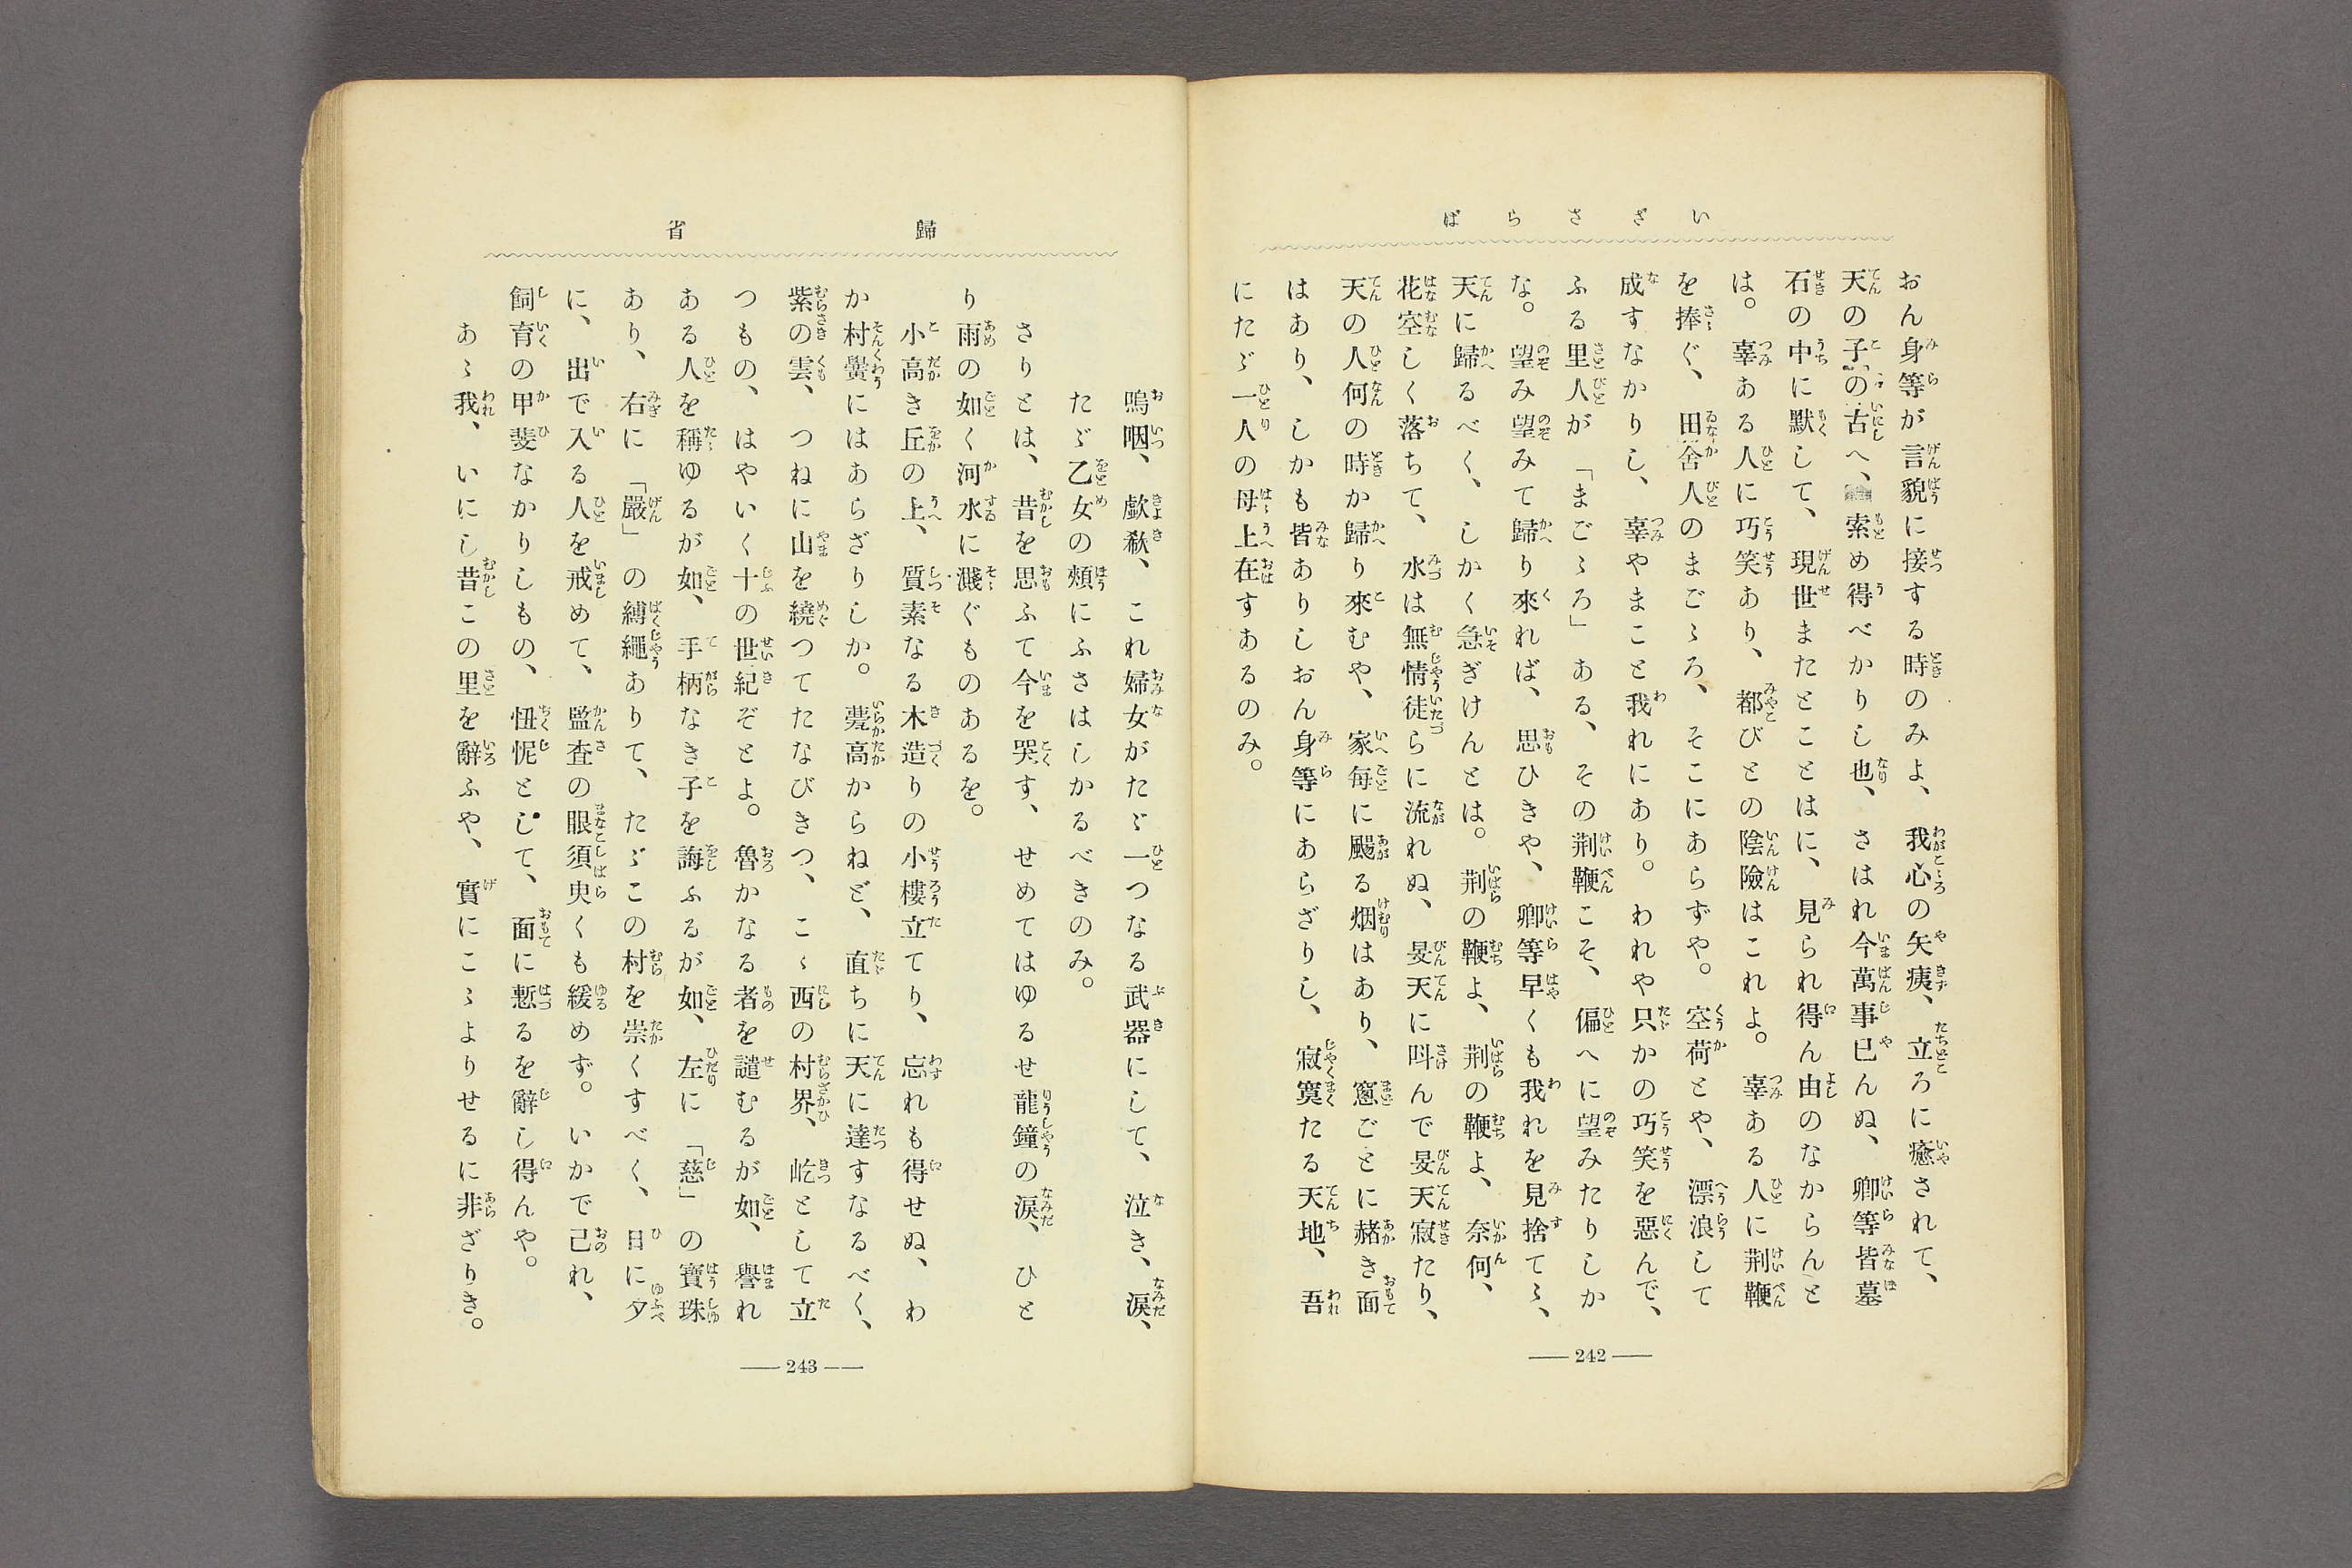 いざさらば
おん身等が言貌に接する時のみよ、我心の矢痍、立ろに癒されて、
天の子の古へ、索め得べかりし也、さはれ今萬事已んぬ、卿等皆墓
石の中に默して、現世またとことはに、見られ得ん由のなからんと
は。辜ある人に巧笑あり、都びとの陰險はこれよ。辜ある人に荆鞭
を捧ぐ、田舍人のまごゝろ、そこにあらずや。空荷とや、漂浪して
成すなかりし、辜やまこと我れにあり。われや只かの巧笑を惡んで、
ふる里人が「まごゝろ」ある、その荆鞭こそ、偏へに望みたりしか
な。望み望みて歸り來れば、思ひきや、卿等早くも我れを見捨てゝ、
天に歸るべく、しかく急ぎけんとは。荆の鞭よ、荆の鞭よ、奈何、
花空しく落ちて、水は無情徒らに流れぬ、旻天に呌んで旻天寂たり、
天の人何の時か歸り來むや、家每に颺る烟はあり、窻ごとに赭き面
はあり、しかも皆ありしおん身等にあらざりし、寂寞たる天地、吾
にたゞ一人の母上在すあるのみ。
242
歸省
嗚咽、歔欷、これ婦女がたゞ一つなる武器にして、泣き、淚、
たゞ乙女の頰にふさはしかるべきのみ。
さりとは、昔を思ふて今を哭す、せめてはゆるせ龍鐘の淚、ひと
り雨の如く河水に濺ぐものあるを。
小高き丘の上、質素なる木造りの小樓立てり、忘れも得せぬ、わ
か村黌にはあらざりしか。甍高からねど、直ちに天に達すなるべく、
紫の雲、つねに山を繞つてたなびきつ、こゝ西の村界、屹として立
つもの、はやいく十の世紀ぞとよ。魯かなる者を譴むるが如、譽れ
ある人を稱ゆるが如、手柄なき子を誨ふるが如、左に「慈」の寶珠
あり、右に「嚴」の縛繩ありて、たゞこの村を崇くすべく、日に夕
に、出で入る人を戒めて、監査の眼須臾くも緩めず。いかで己れ、
飼育の甲斐なかりしもの、忸怩として、面に慙るを辭し得んや。
あゝ我、いにし昔この里を辭ふや、實にこゝよりせるに非ざりき。
243